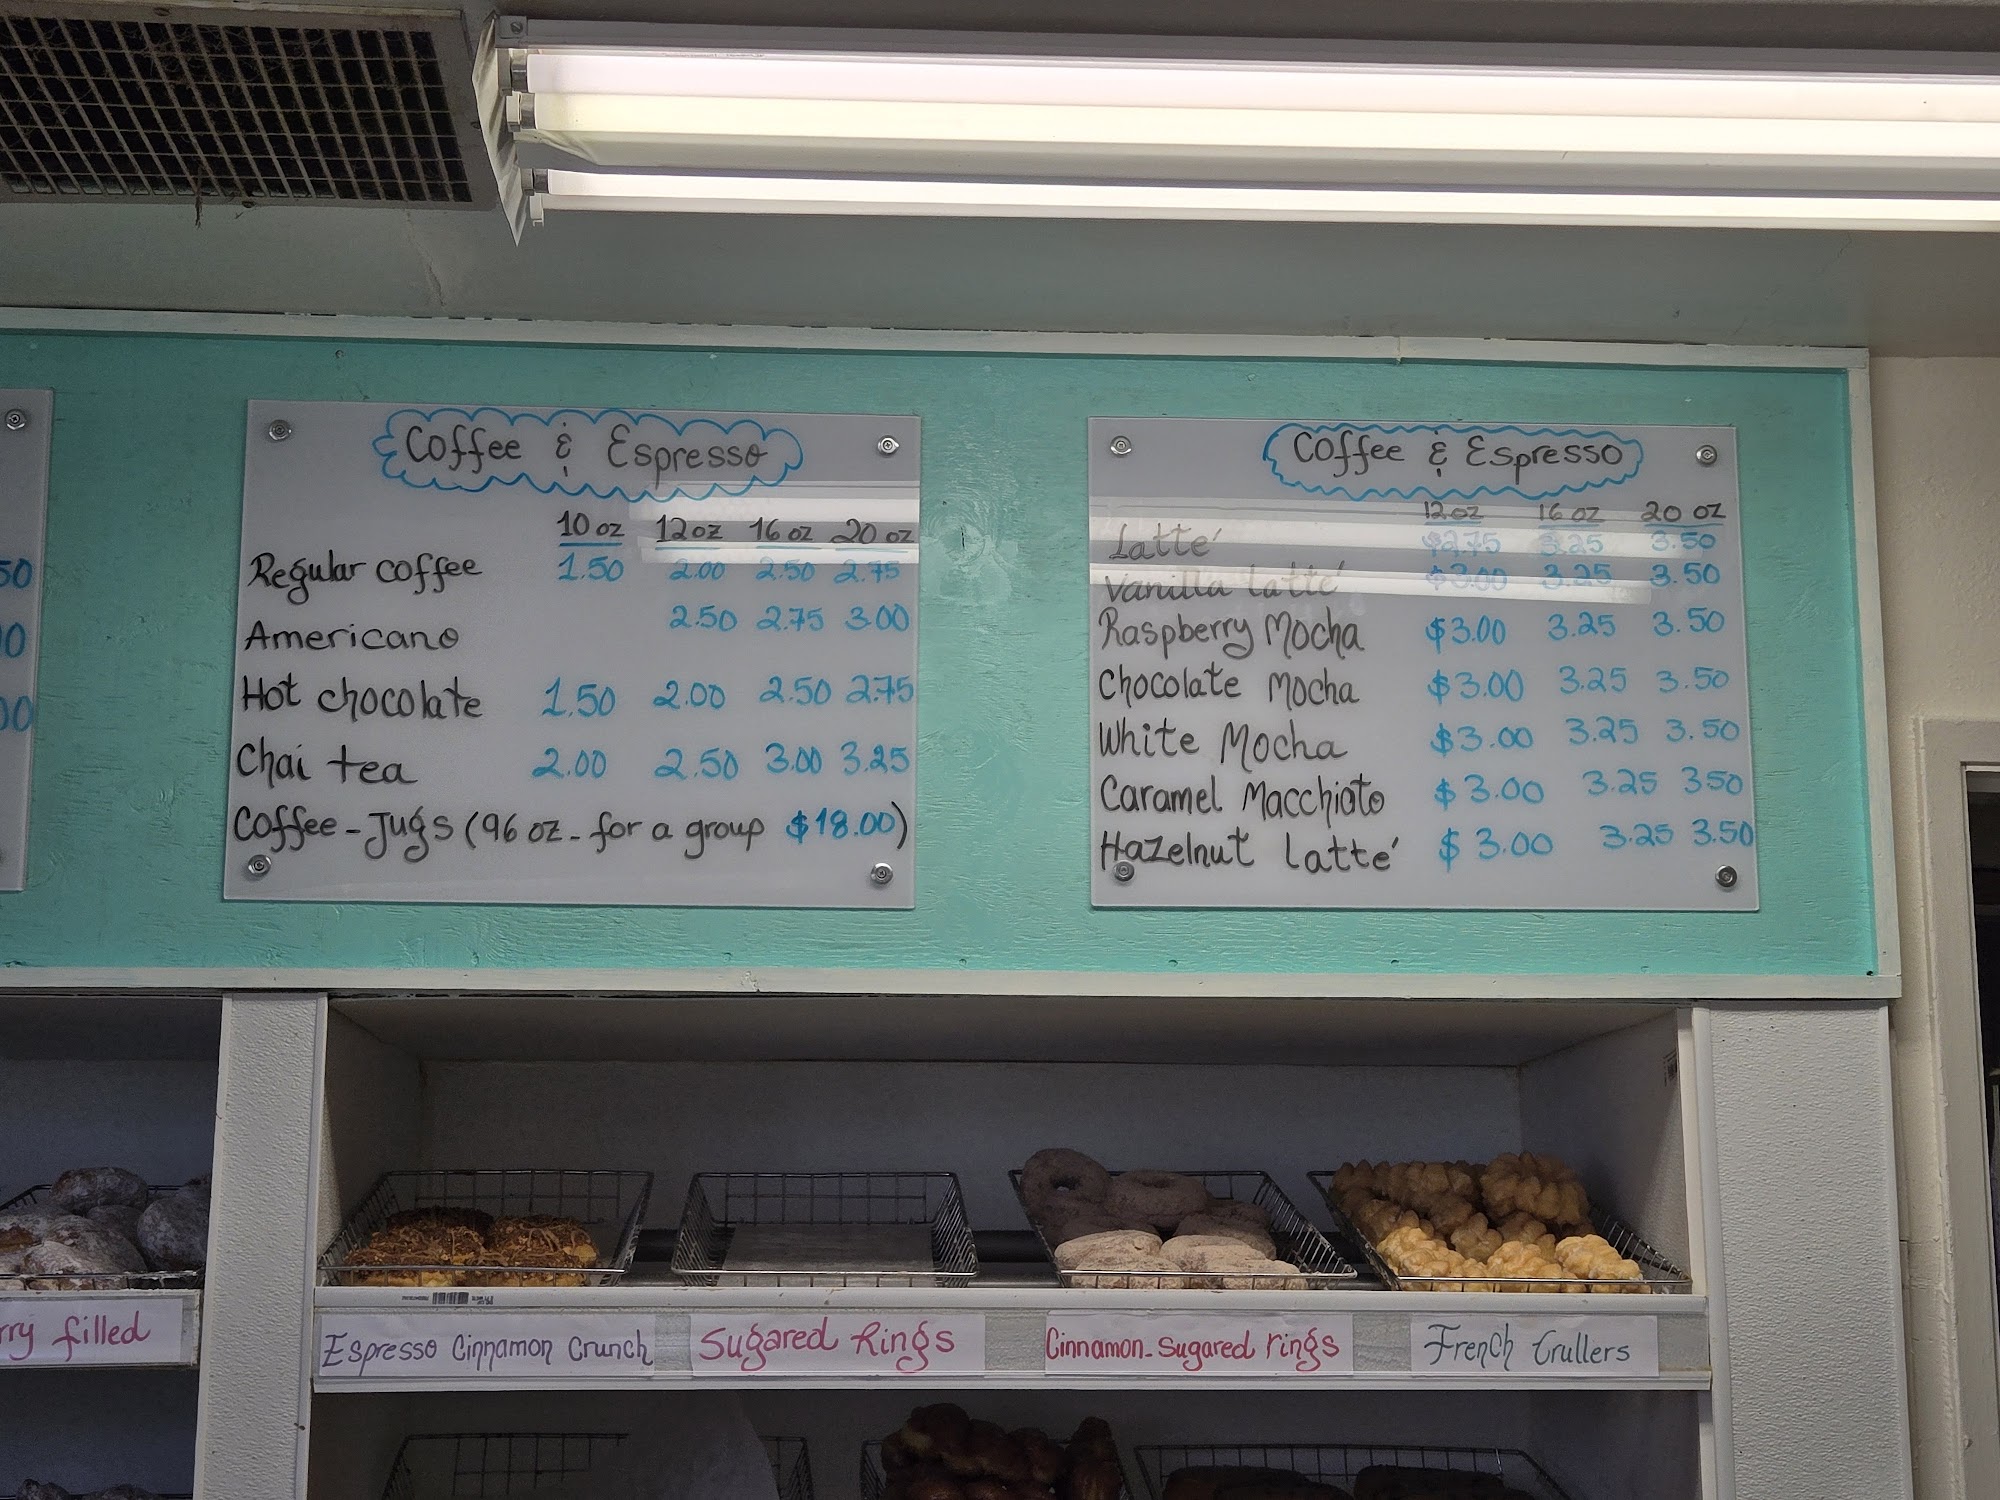 50
00
00
Coffee & Espresso
10 oz 12 oz 16 oz 20 oz
Regular coffee 1.50 2.00 2.50 2.75
Americano 2.50 2.75 3.00
Hot chocolate 1.50 2.00 2.50 2.75
Chai tea 2.00 2.50 3.00 3.25
Coffee - Jugs (96 oz - for a group $18.00)
Coffee & Espresso
12 oz 16 oz 20 oz
Latté $2.75 3.25 3.50
Vanilla latté $3.00 3.25 3.50
Raspberry Mocha $3.00 3.25 3.50
Chocolate Mocha $3.00 3.25 3.50
White Mocha $3.00 3.25 3.50
Caramel Macchiato $3.00 3.25 3.50
Hazelnut Latté $3.00 3.25 3.50
rry filled
Espresso Cinnamon Crunch
Sugared Rings
Cinnamon-Sugared rings
French Crullers